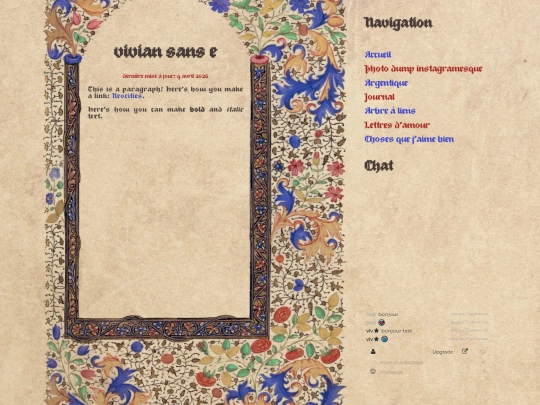 vivian sans e
dernière mise à jour: 9 avril 2026
This is a paragraph! Here's how you make
a link: Neocities.
Here's how you can make bold and italic
text.
Navigation
Accueil
Photo dump instagramesque
Argentique
Journal
Arbre à liens
Lettres d'amour
Choses que j'aime bien
Chat
bonjour
viv★ bonjour test
viv★
Upgrade